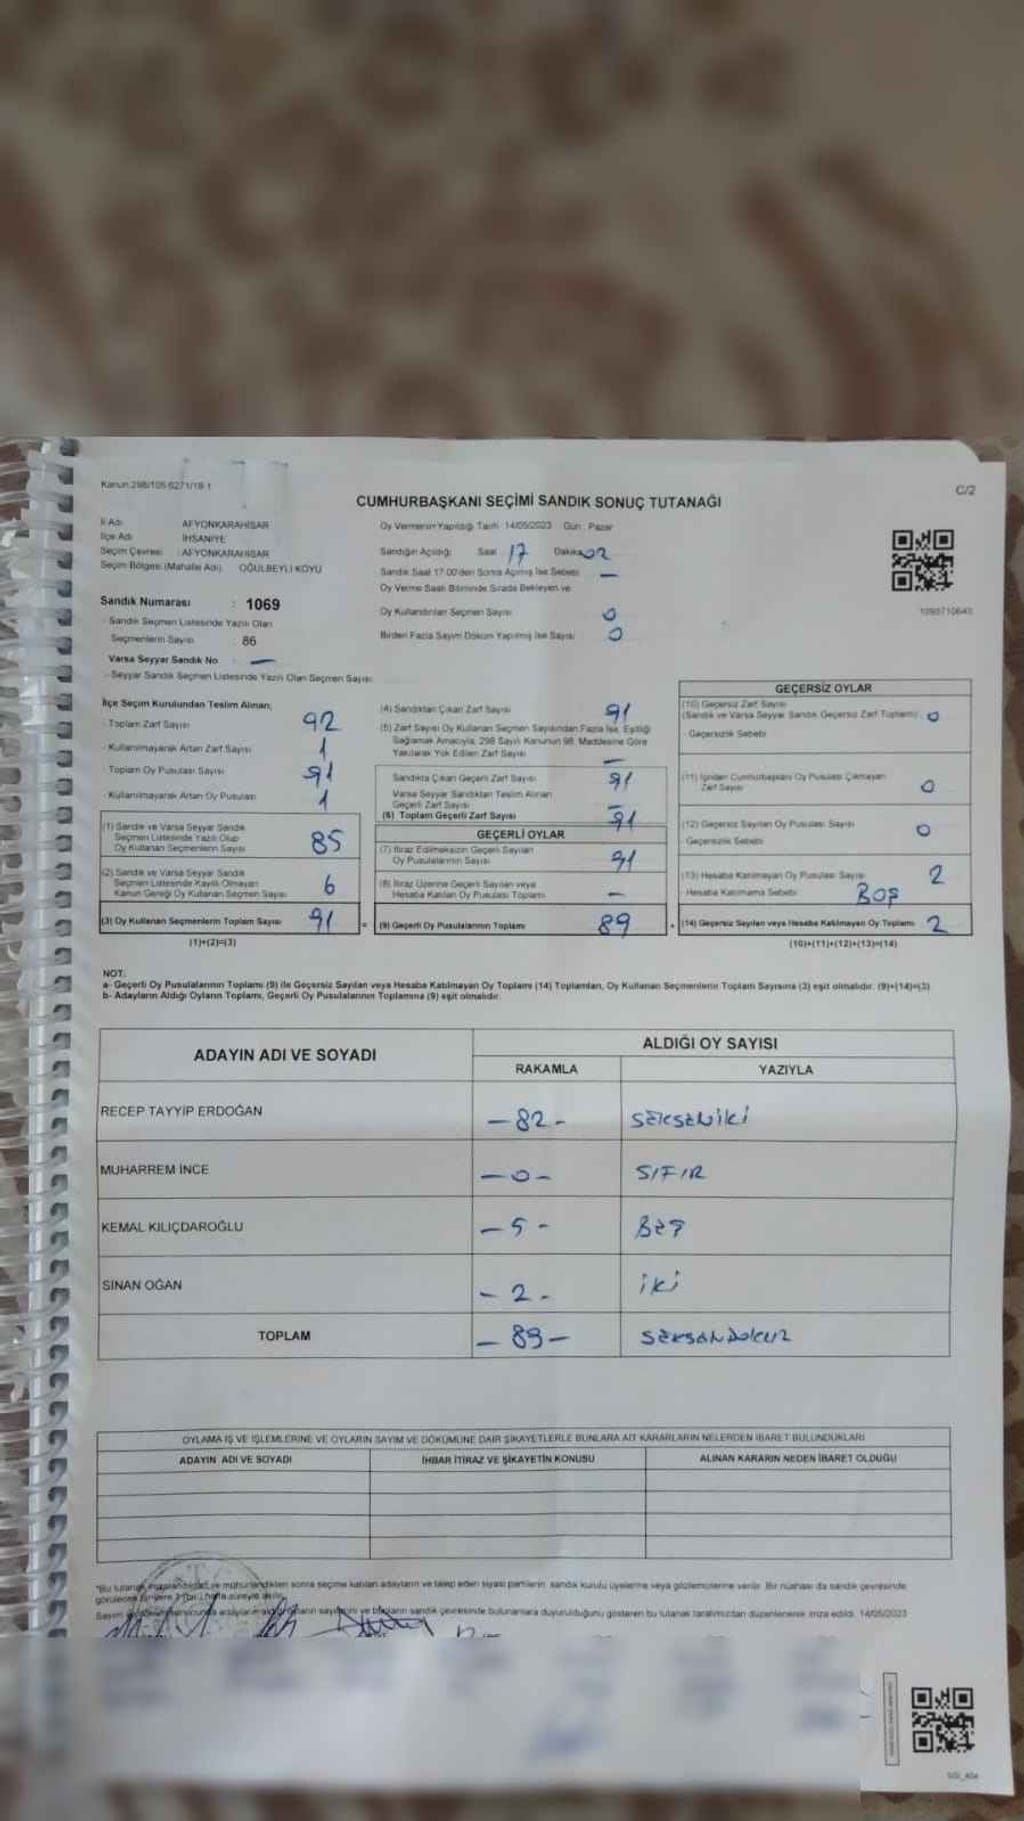 Kanun:298/105 6271/18-1
C/2
CUMHURBAŞKANI SEÇİMİ SANDIK SONUÇ TUTANAĞI
İl Adı AFYONKARAHİSAR
İlçe Adı İHSANİYE
Seçim Çevresi : AFYONKARAHİSAR
Seçim Bölgesi (Mahalle Adı) OĞULBEYLİ KÖYÜ
Oy Vermenin Yapıldığı Tarih 14/05/2023 Gün: Pazar
Sandığın Açıldığı: Saat 17 Dakika 02
Sandık Saat 17.00'den Sonra Açılmış İse Sebebi —
Oy Verme Saati Bitiminde Sırada Bekleyen ve
Oy Kullandırılan Seçmen Sayısı 0
Birden Fazla Sayım Döküm Yapılmış İse Sayısı 0
Sandık Numarası : 1069
- Sandık Seçmen Listesinde Yazılı Olan
Seçmenlerin Sayısı : 86
Varsa Seyyar Sandık No —
- Seyyar Sandık Seçmen Listesinde Yazılı Olan Seçmen Sayısı:
İlçe Seçim Kurulundan Teslim Alınan;
- Toplam Zarf Sayısı 92
- Kullanılmayarak Artan Zarf Sayısı 1
- Toplam Oy Pusulası Sayısı 91
- Kullanılmayarak Artan Oy Pusulası 1
(1) Sandık ve Varsa Seyyar Sandık
Seçmen Listesinde Yazılı Olup
Oy Kullanan Seçmenlerin Sayısı 85
(2) Sandık ve Varsa Seyyar Sandık
Seçmen Listesinde Kayıtlı Olmayan
Kanun Gereği Oy Kullanan Seçmen Sayısı 6
(3) Oy Kullanan Seçmenlerin Toplam Sayısı 91
(1)+(2)=(3)
(4) Sandıktan Çıkan Zarf Sayısı 91
(5) Zarf Sayısı Oy Kullanan Seçmen Sayısından Fazla İse, Eşitliği
Sağlamak Amacıyla, 298 Sayılı Kanunun 98. Maddesine Göre
Yakılarak Yok Edilen Zarf Sayısı —
Sandıkta Çıkan Geçerli Zarf Sayısı 91
Varsa Seyyar Sandıktan Teslim Alınan
Geçerli Zarf Sayısı —
(6) Toplam Geçerli Zarf Sayısı 91
GEÇERLİ OYLAR
(7) İtiraz Edilmeksizin Geçerli Sayılan
Oy Pusulalarının Sayısı 91
(8) İtiraz Üzerine Geçerli Sayılan veya
Hesaba Katılan Oy Pusulası Toplamı —
= (9) Geçerli Oy Pusulalarının Toplamı 89
GEÇERSİZ OYLAR
(10) Geçersiz Zarf Sayısı
(Sandık ve Varsa Seyyar Sandık Geçersiz Zarf Toplamı) 0
- Geçersizlik Sebebi:
(11) İçinden Cumhurbaşkanı Oy Pusulası Çıkmayan
Zarf Sayısı 0
(12) Geçersiz Sayılan Oy Pusulası Sayısı 0
Geçersizlik Sebebi:
(13) Hesaba Katılmayan Oy Pusulası Sayısı 2
Hesaba Katılmama Sebebi: BOŞ
+ (14) Geçersiz Sayılan veya Hesaba Katılmayan Oy Toplamı 2
(10)+(11)+(12)+(13)=(14)
NOT:
a- Geçerli Oy Pusulalarının Toplamı (9) ile Geçersiz Sayılan veya Hesaba Katılmayan Oy Toplamı (14) Toplamları, Oy Kullanan Seçmenlerin Toplam Sayısına (3) eşit olmalıdır. (9)+(14)=(3)
b- Adayların Aldığı Oyların Toplamı, Geçerli Oy Pusulalarının Toplamına (9) eşit olmalıdır.
ADAYIN ADI VE SOYADI ALDIĞI OY SAYISI
RAKAMLA YAZIYLA
RECEP TAYYİP ERDOĞAN – 82 – SEKSENİKİ
MUHARREM İNCE – 0 – SIFIR
KEMAL KILIÇDAROĞLU – 5 – BEŞ
SİNAN OĞAN – 2 – İKİ
TOPLAM – 89 – SEKSENDOKUZ
OYLAMA İŞ VE İŞLEMLERİNE VE OYLARIN SAYIM VE DÖKÜMÜNE DAİR ŞİKAYETLERLE BUNLARA AİT KARARLARIN NELERDEN İBARET BULUNDUKLARI
ADAYIN ADI VE SOYADI İHBAR İTİRAZ VE ŞİKAYETİN KONUSU ALINAN KARARIN NEDEN İBARET OLDUĞU
*Bu tutanak imzalandıktan ve mühürlendikten sonra seçime katılan adayların ve talep eden siyasi partilerin sandık kurulu üyelerine veya gözlemcilerine verilir. Bir nüshası da sandık çevresinde
bu tutanak tarafımızdan düzenlenerek imza edildi. 14/05/2023